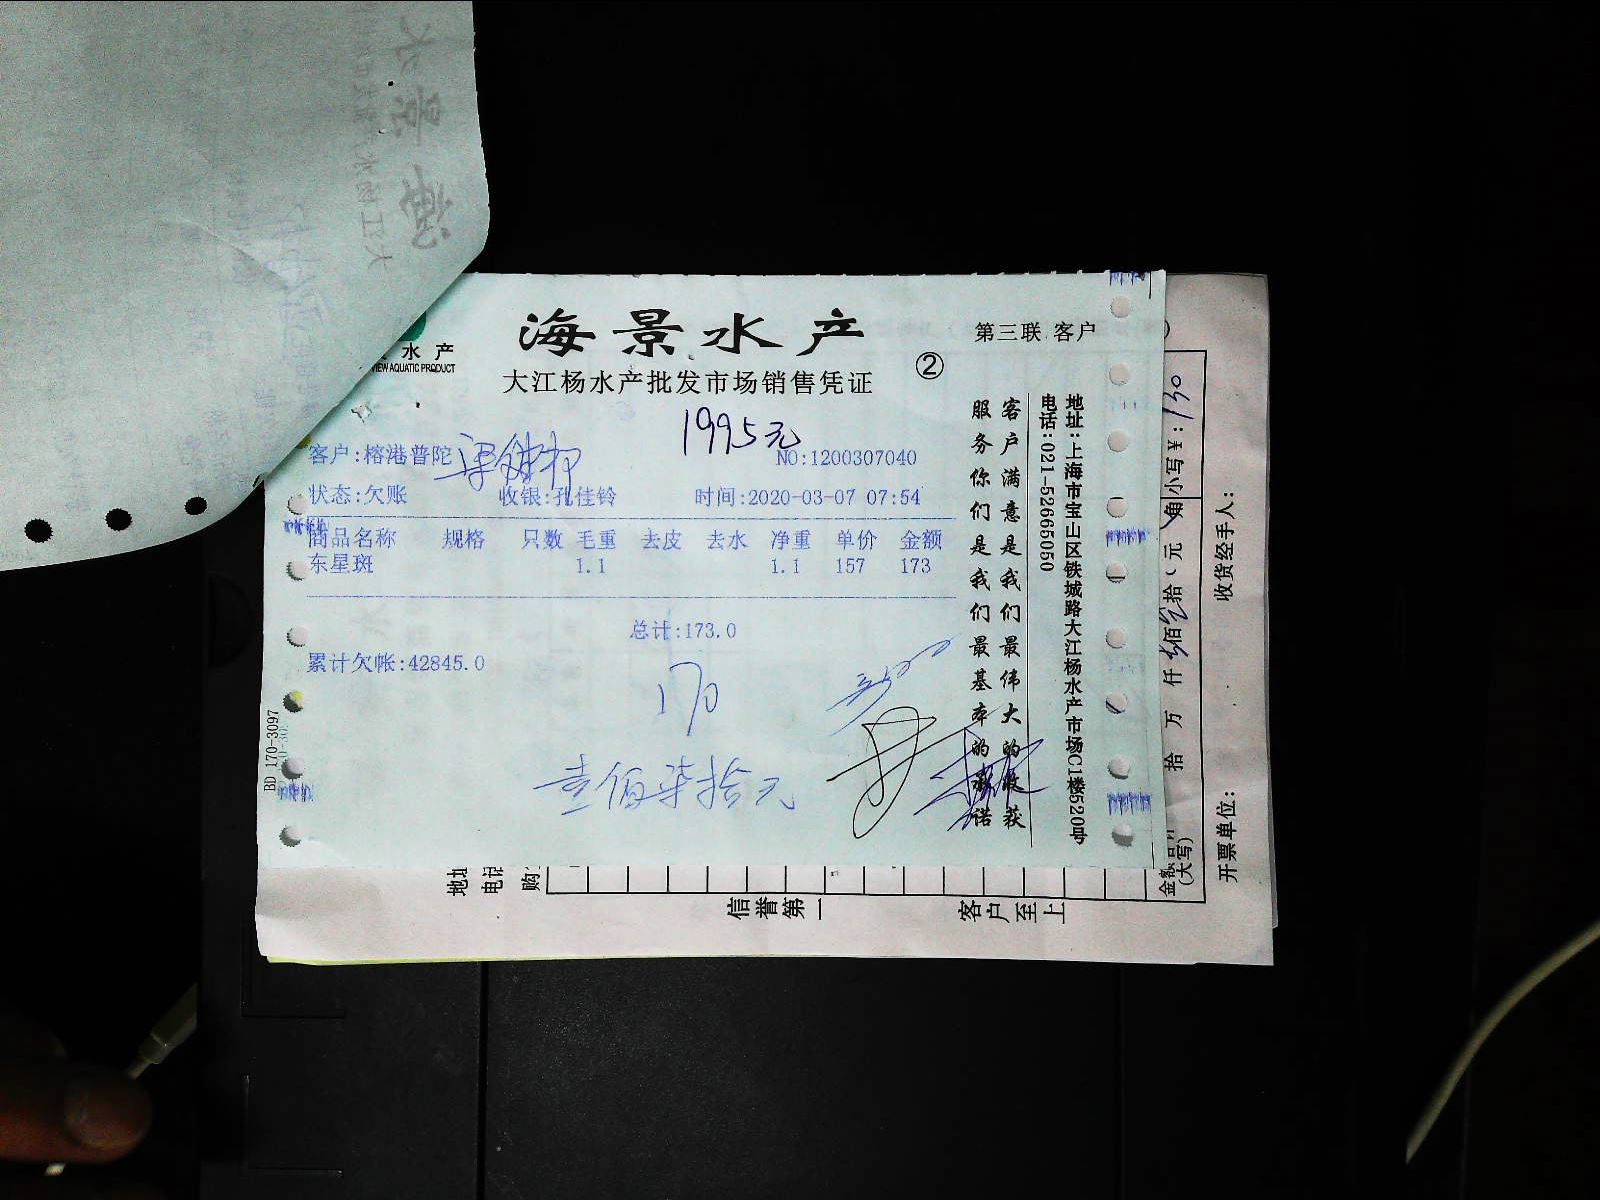 海景水产
第三联 客户
水产
VIEW AQUATIC PRODUCT
大江杨水产批发市场销售凭证
②
1995元
客户:榕港普陀
NO:1200307040
状态:欠账 收银:孔佳铃 时间:2020-03-07 07:54
商品名称 规格 只数 毛重 去皮 去水 净重 单价 金额
东星斑 1.1 1.1 157 173
总计:173.0
累计欠帐:42845.0
170
壹佰柒拾元
客户满意是我们最伟大的收获
服务你们是我们最基本的承诺
地址:上海市宝山区铁城路大江杨水产市场C1楼520号
电话:021-52665050
BD 170-3097
小写¥:130
拾万仟佰拾元角
(大写)
收货经手人:
开票单位:
地址
电话
购
信誉第一
客户至上